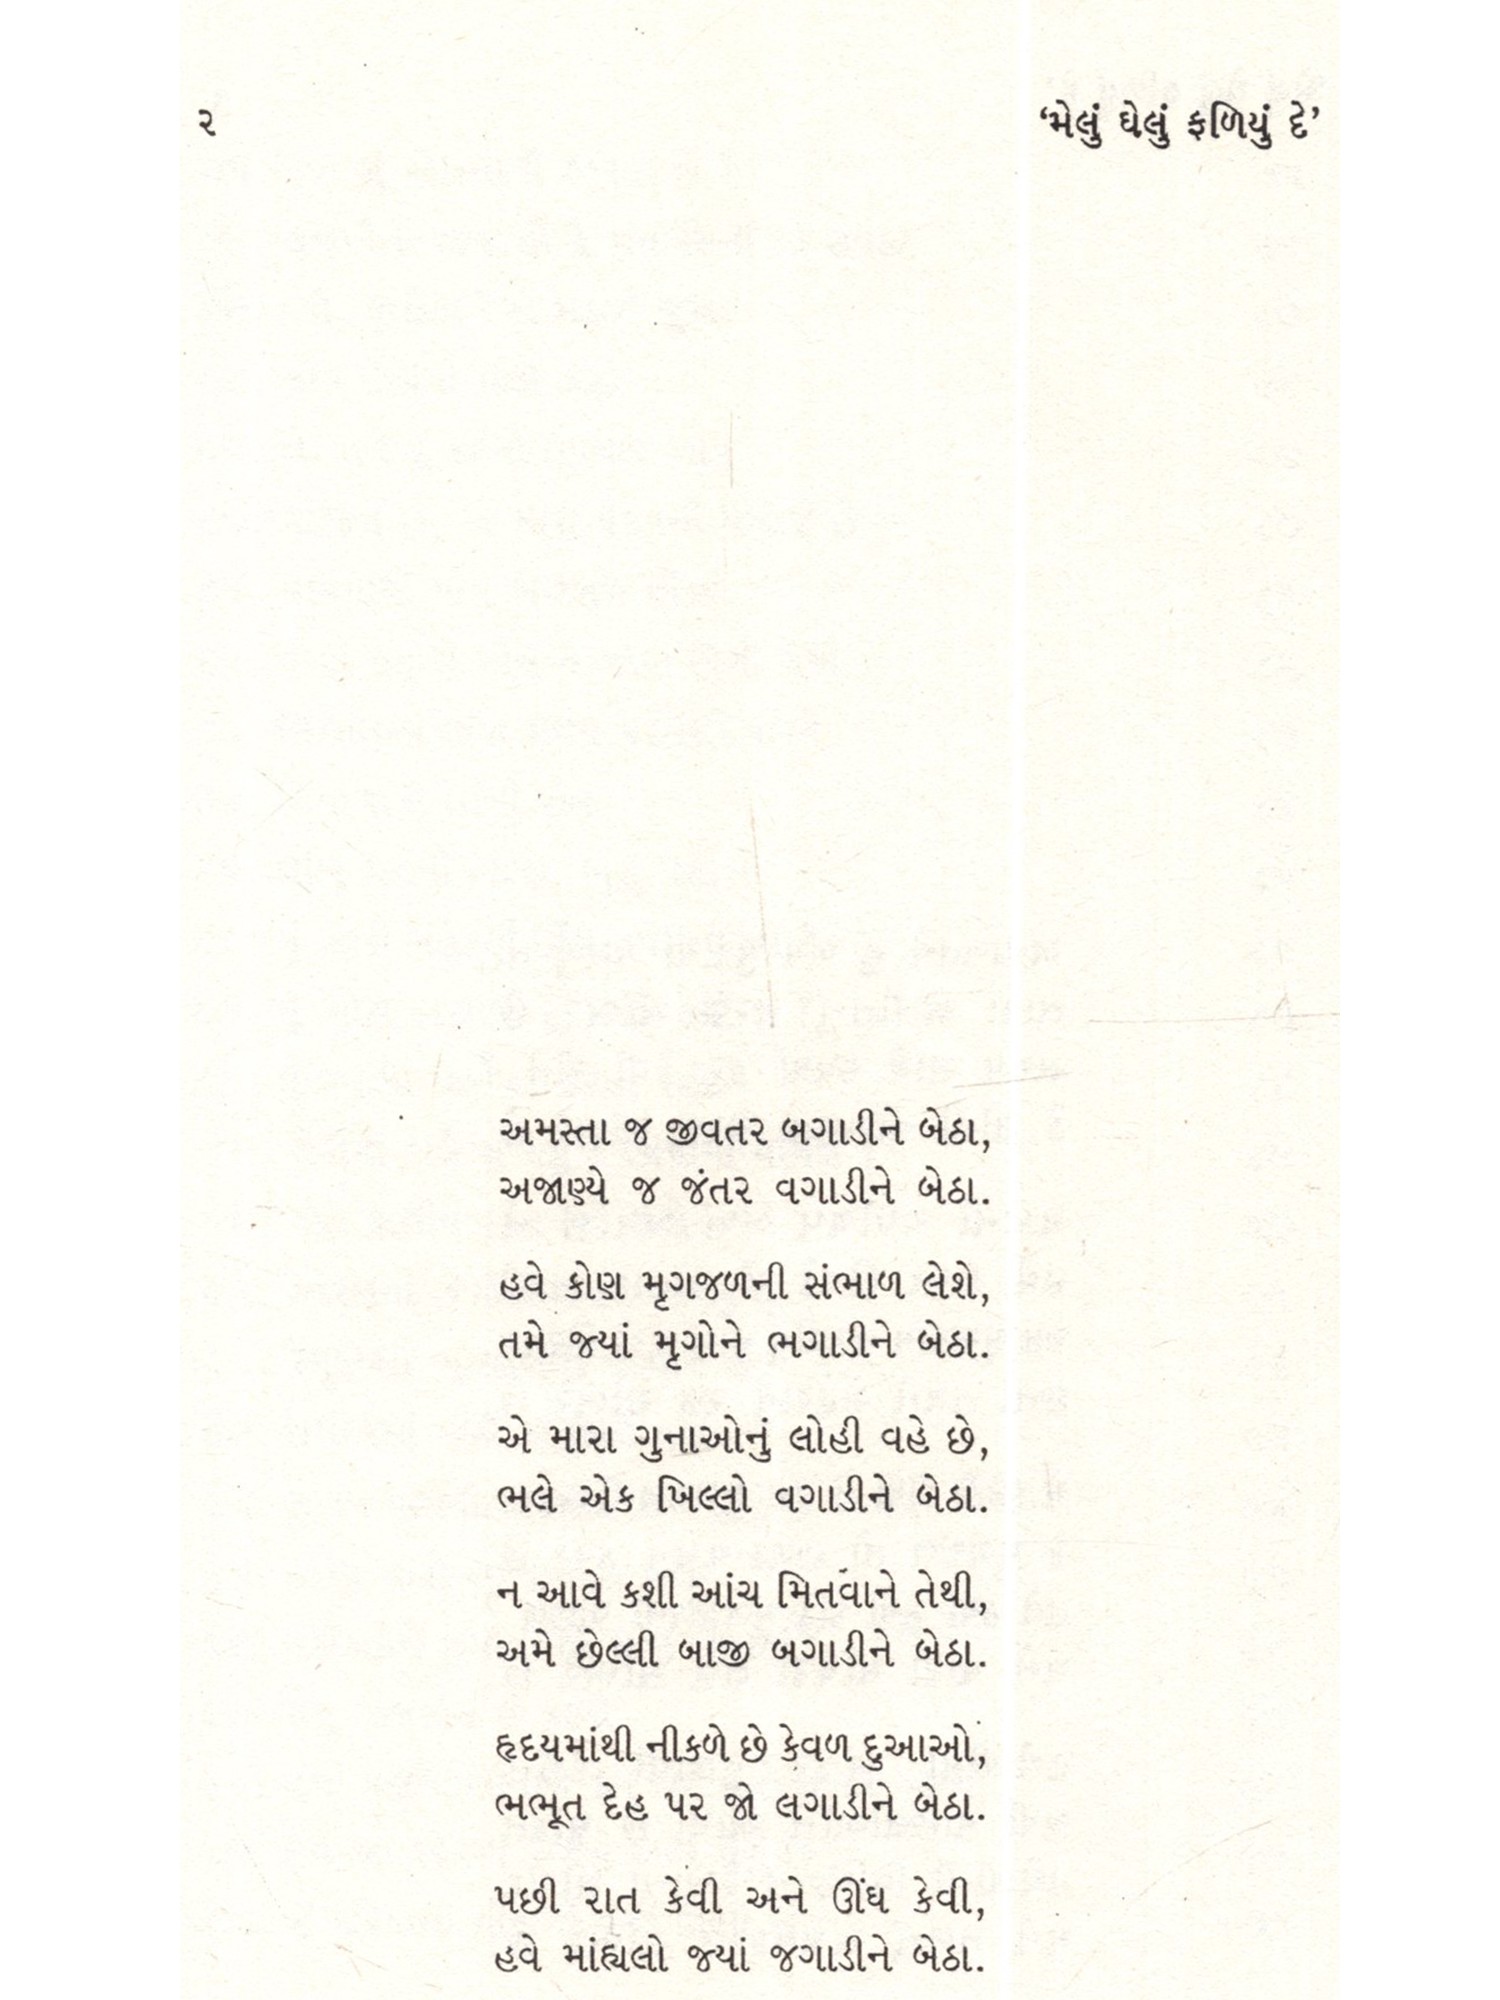 ૨ ‘મેલું ઘેલું ફળિયું દે’
અમસ્તા જ જીવતર બગાડીને બેઠા,
અજાણ્યે જ જંતર વગાડીને બેઠા.
હવે કોણ મૃગજળની સંભાળ લેશે,
તમે જ્યાં મૃગોને ભગાડીને બેઠા.
એ મારા ગુનાઓનું લોહી વહે છે,
ભલે એક ખિલ્લો વગાડીને બેઠા.
ન આવે કશી આંચ મિતવાને તેથી,
અમે છેલ્લી બાજી બગાડીને બેઠા.
હૃદયમાંથી નીકળે છે કેવળ દુઆઓ,
ભભૂત દેહ પર જો લગાડીને બેઠા.
પછી રાત કેવી અને ઊંઘ કેવી,
હવે માંહ્યલો જ્યાં જગાડીને બેઠા.